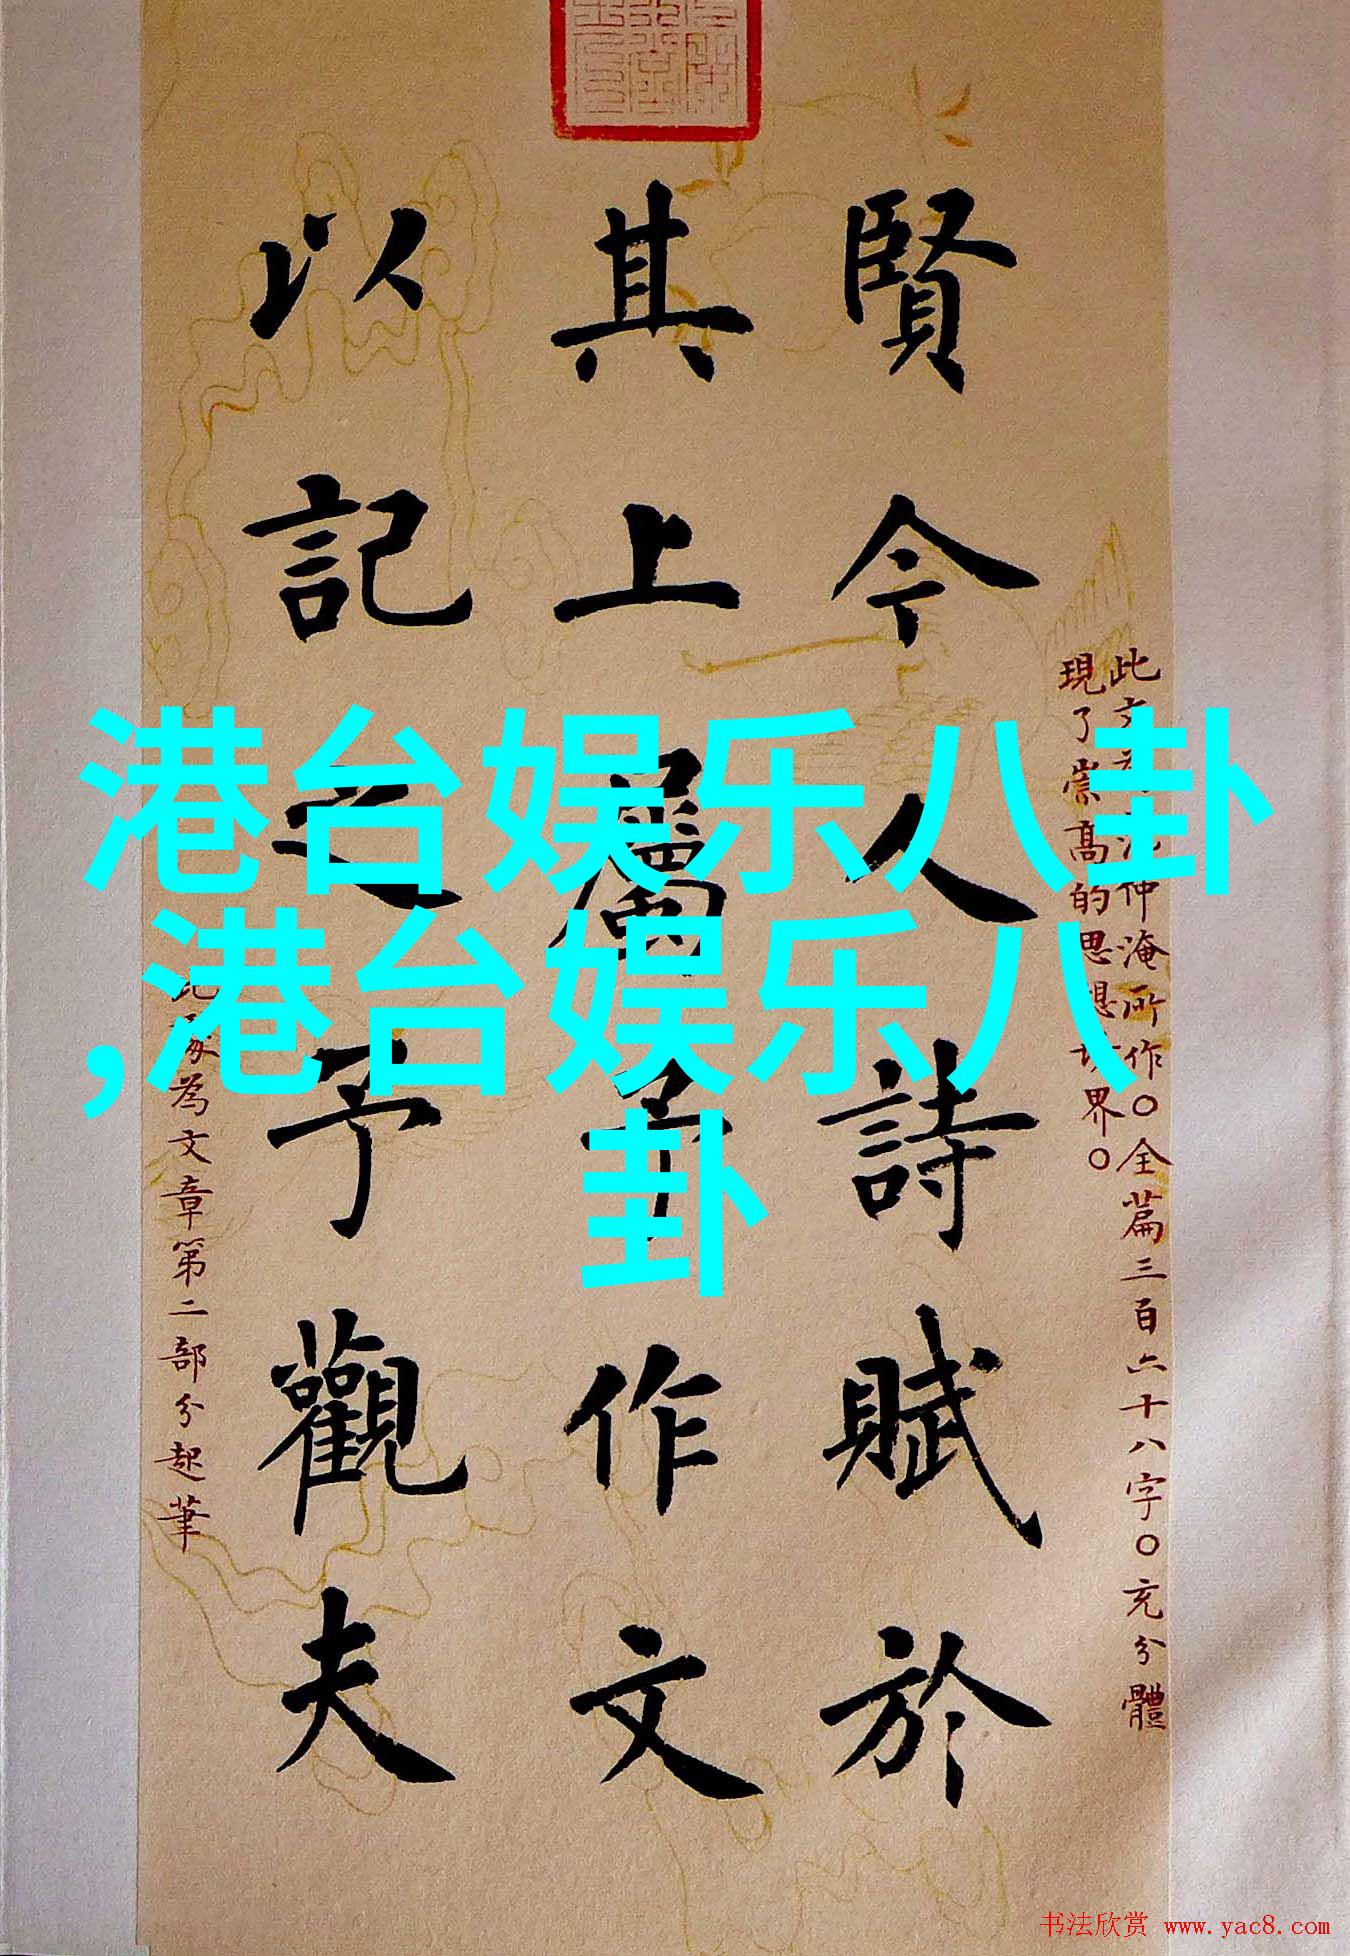 賢今人詩賦於
其上屬予作文
以記之予觀夫
此文為范仲淹所作〇全篇三百六十八字〇充分體
現了崇高的思想境界〇
此啄為文章第二部分起筆
港台娱乐八卦
,港台娱乐八
卦
书法欣赏 www.yac8.com